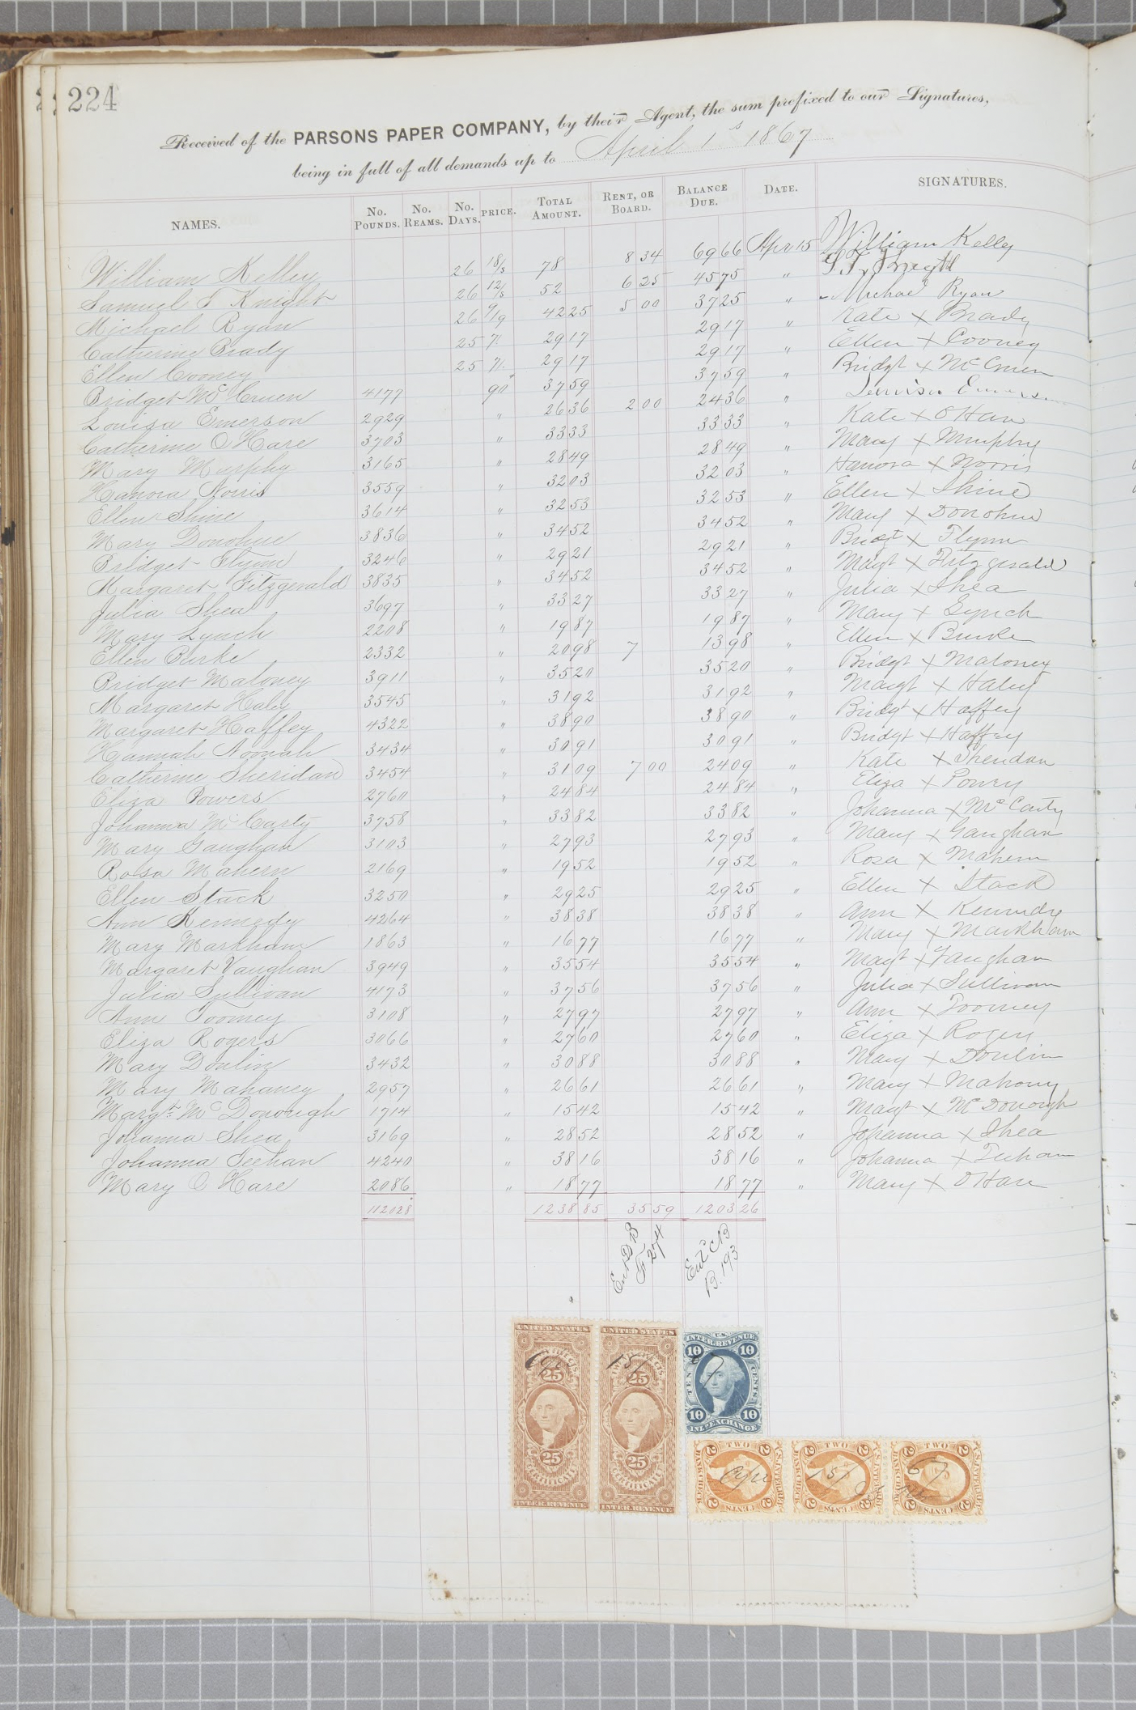 224
Received of the PARSONS PAPER COMPANY, by their Agent, the sum prefixed to our Signatures,
being in full of all demands up to April 1st 1867
NAMES. No. Pounds. No. Reams. No. Days. PRICE. Total Amount. Rent, or Board. Balance Due. Date. SIGNATURES.
William Kelley 26 18/3 78 8 34 69 66 Apr 15 William Kelly
Samuel S Knight 26 12/6 52 6 25 45 75 "
Michael Ryan 26 9/9 42 25 5 00 37 25 " Michael Ryan
Catherine Brady 25 7/ 29 17 29 17 " Kate X Brady
Ellen Cooney 25 7/ 29 17 29 17 " Ellen X Cooney
Bridget McGruen 4177 90 37 59 37 59 " Bridgt X McGruen
Louisa Emerson 2929 " 26 36 2 00 24 36 " Louisa Emerson
Catherine O Hare 3703 " 33 33 33 33 " Kate X O Hare
Mary Murphy 3165 " 28 49 28 49 " Mary X Murphy
Hanora Norris 3559 " 32 03 32 03 " Hanora X Norris
Ellen Shine 3614 " 32 53 32 53 " Ellen X Shine
Mary Donohue 3836 " 34 52 34 52 " Mary X Donohue
Bridget Flynn 3246 " 29 21 29 21 " Bridgt X Flynn
Margaret Fitzgerald 3835 " 34 52 34 52 " Magt X Fitzgerald
Julia Shea 3697 " 33 27 33 27 " Julia X Shea
Mary Lynch 2208 " 19 87 19 87 " Mary X Lynch
Ellen Burke 2332 " 20 98 7 13 98 " Ellen X Burke
Bridget Maloney 3911 " 35 20 35 20 " Bridgt X Maloney
Margaret Haley 3545 " 31 92 31 92 " Margt X Haley
Margaret Haffey 4322 " 38 90 38 90 " Bridgt X Haffey
Hannah Noonah 3434 " 30 91 30 91 " Bridgt X Haffey
Catherine Sheridan 3454 " 31 09 7 00 24 09 " Kate X Sheridan
Eliza Powers 2760 " 24 84 24 84 " Eliza X
Johanna McCarty 3758 " 33 82 33 82 " Johanna X McCarty
Mary Gaughan 3103 " 27 93 27 93 " Mary X Gaughan
Rosa Mahern 2169 " 19 52 19 52 " Rosa X Mahern
Ellen Stack 3250 " 29 25 29 25 " Ellen X Stack
Ann Kennedy 4264 " 38 38 38 38 " Ann X Kennedy
Mary Markham 1863 " 16 77 16 77 " Mary X Markham
Margaret Vaughan 3949 " 35 54 35 54 " Magt X Vaughan
Julia Sullivan 4173 " 37 56 37 56 " Julia X Sullivan
Ann Toomey 3108 " 27 97 27 97 " Ann X Toomey
Eliza Rogers 3066 " 27 60 27 60 " Eliza X Rogers
Mary Donlin 3432 " 30 88 30 88 " Mary X Donlin
Mary Mahaney 2957 " 26 61 26 61 " Mary X Mahony
Margt McDonough 1714 " 15 42 15 42 " Magt X McDonough
Johanna Shea 3169 " 28 52 28 52 " Johanna X Shea
Johanna Teehan 4240 " 38 16 38 16 " Johanna X Teehan
Mary O Hare 2086 " 18 77 18 77 " Mary X O Hare
112128 1238 85 35 59 1203 26
Ent D B Fo 274
Entd CB P. 193
UNITED STATES UNITED STATES
INTER. REVENUE
10 10
TEN CENTS
10 10
INL. EXCHANGE
25 25
CERTIFICATE CERTIFICATE
25 25
INTER. REVENUE INTER. REVENUE
2 TWO 2 2 TWO 2 2 TWO 2
2 CENTS 2 2 CENTS 2 2 CENTS 2
Apr 1st 67